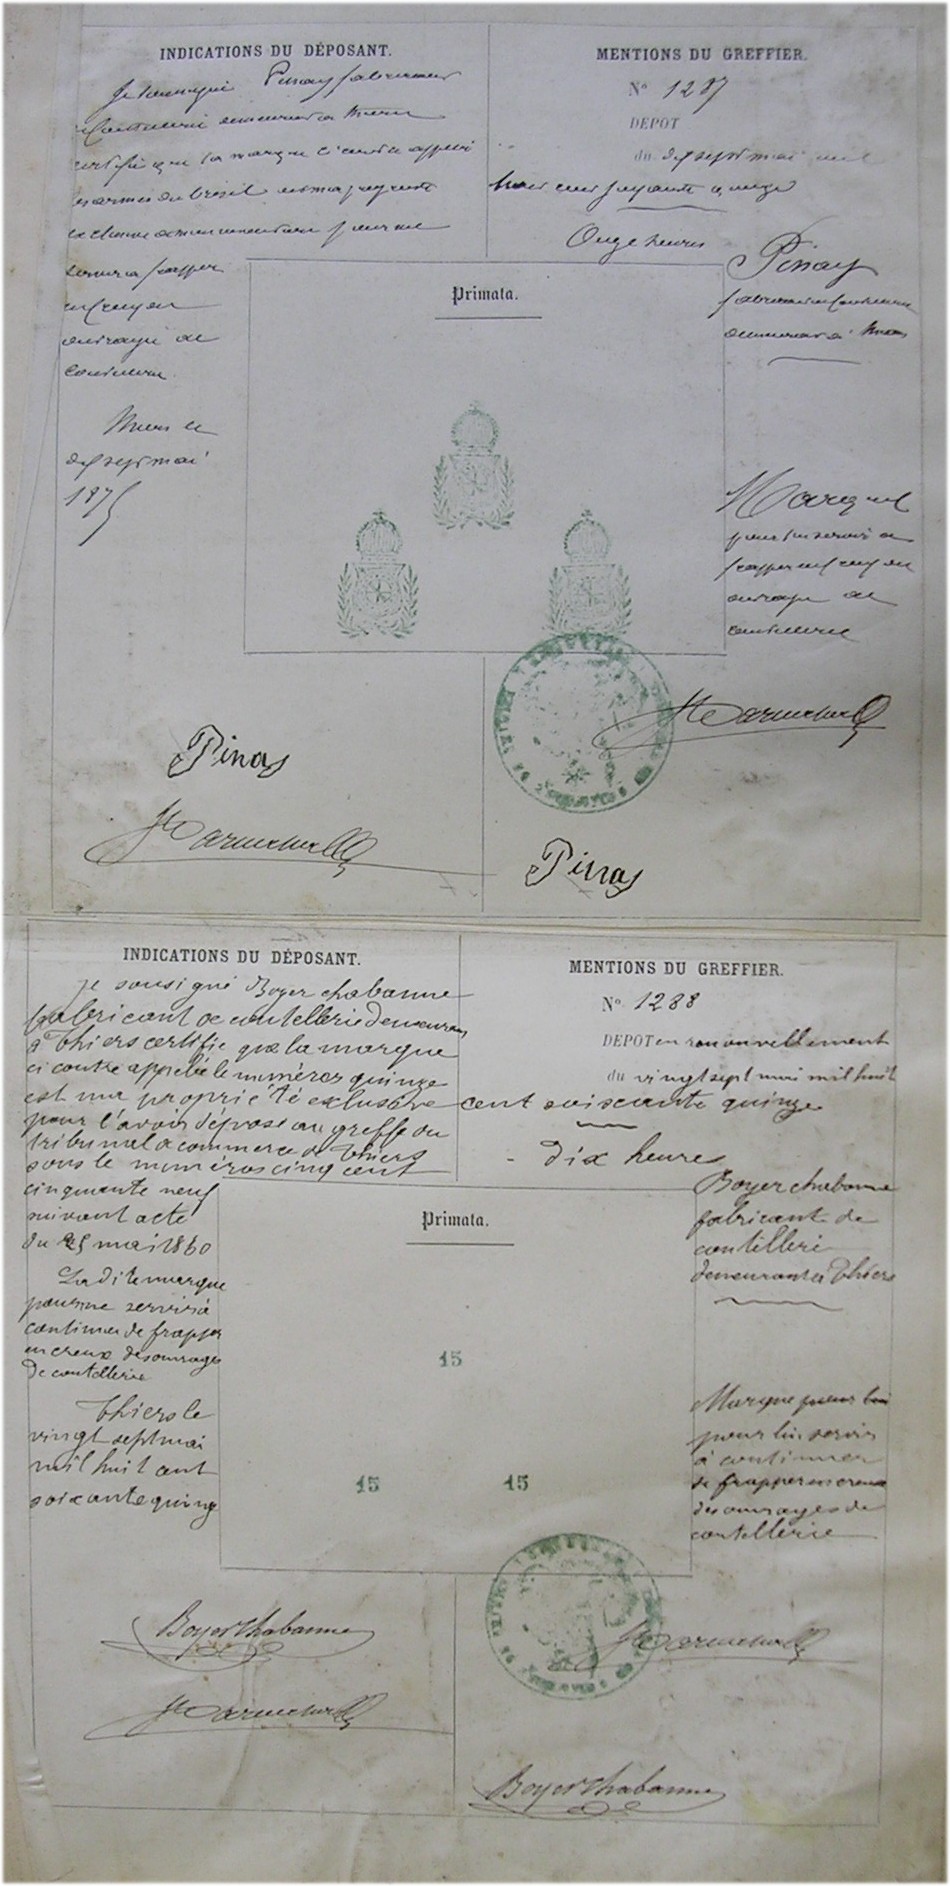 INDICATIONS DU DÉPOSANT.
Je soussigné Pinay fabricant
coutellerie demeurant a Thiers
certifie que la marque ci contre appelée
les armes du brésil est ma propriété
exclusive
servir a frapper
en creux des
ouvrages de
coutellerie.
Thiers le
dix sept mai
1875
MENTIONS DU GREFFIER.
No 1287
DEPOT
du dix sept mai mil
huit cent soixante quinze
Onze heures
Primata.
Pinay
fabricant de coutellerie
demeurant a Thiers
Marque
pour lui servir a
frapper en creux des
ouvrages de
coutellerie
Pinay
Pinay
INDICATIONS DU DÉPOSANT.
Je sousigné Boyer chabanne
fabricant de coutellerie demeurant
a Thiers certifie que la marque
ci contre appelée le numéros quinze
est ma propriété exclusive
pour l'avoir déposé au greffe du
tribunal de commerce de Thiers
sous le numéros cinq cent
cinquante neuf
suivant acte
du 25 mai 1860
La dite marque
pour me servir à
continuer de frapper
en creux des ouvrages
de coutellerie
Thiers le
vingt sept mai
mil huit cent
soixante quinze
MENTIONS DU GREFFIER.
No. 1288
DEPOT en renouvellement
du vingt sept mai mil huit
cent soixante quinze
dix heures
Primata.
Boyer chabanne
fabricant de
coutellerie
demeurant à Thiers
15
15 15
Marque pour lui
pour lui servir
à continuer
de frapper en creux
des ouvrages de
coutellerie
Boyer Chabanne
Boyer Chabanne